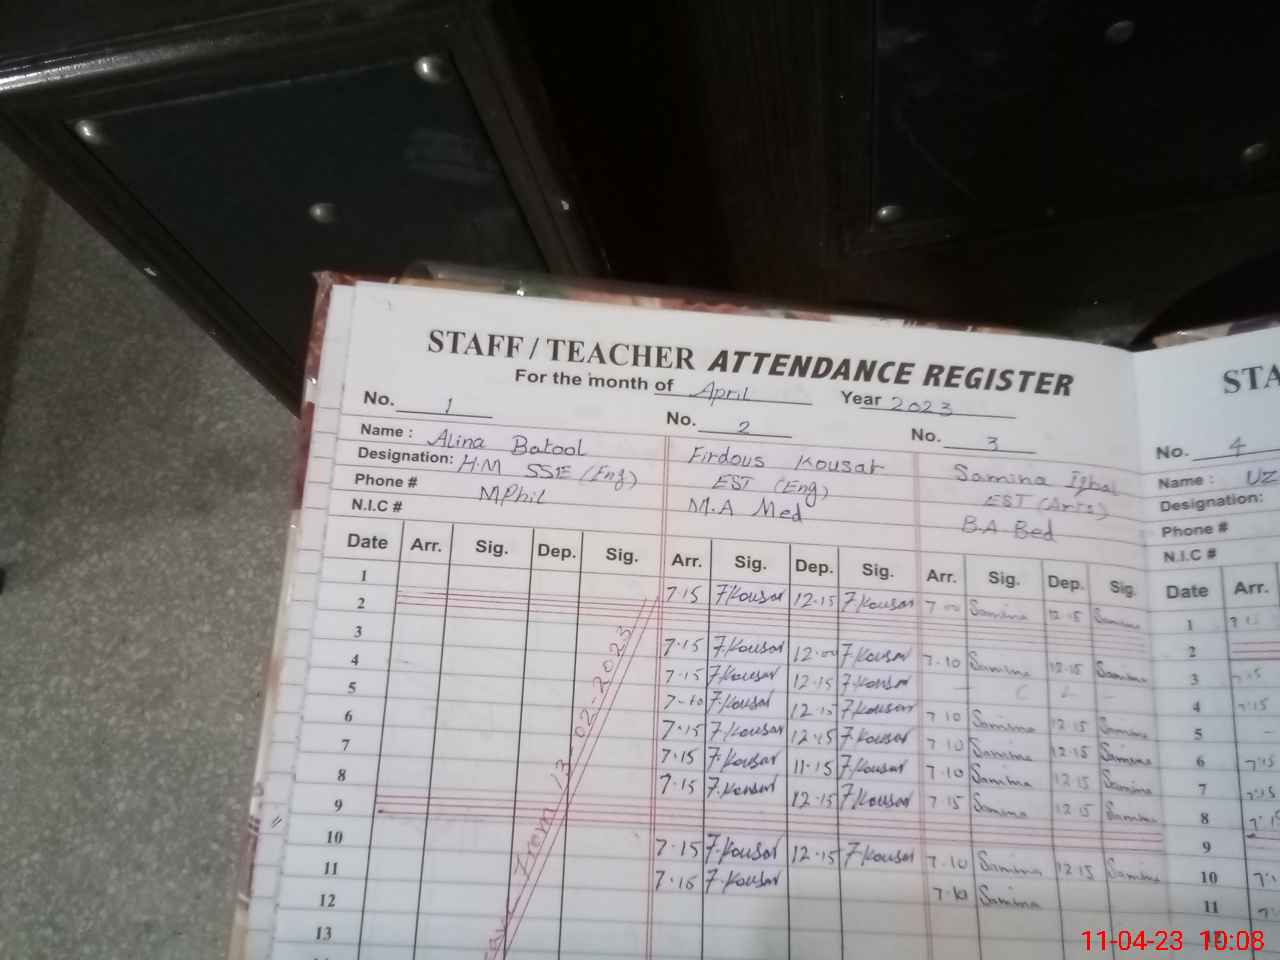 STAFF / TEACHER ATTENDANCE REGISTER
For the month of April Year 2023
No. 1 No. 2 No. 3
Name : Alina Batool Firdous Kousar Samina Iqbal
Designation: H.M SSE (Eng) EST (Eng) EST (Arts)
Phone # MPhil M.A Med B.A Bed
N.I.C #
Date Arr. Sig. Dep. Sig. Arr. Sig. Dep. Sig. Arr. Sig. Dep. Sig.
1 7.15 F.Kousar 12.15 F.Kousar 7.00 Samina 12.15 Samina
2
3 7.15 F.Kousar 12.00 F.Kousar 7.10 Samina 12.15 Samina
4 7.15 F.Kousar 12.15 F.Kousar
5 F.Kousar 12.15 F.Kousar 7.10 Samina 12.15 Samina
6 7.15 F.Kousar 12.15 F.Kousar 7.10 Samina 12.15 Samina
7 7.15 F.Kousar 11.15 F.Kousar 7.10 Samina 12.15 Samina
8 7.15 F.Kousar 12.15 F.Kousar 7.15 Samina 12.15 Samina
9
10 7.15 F.Kousar 12.15 F.Kousar 7.10 Samina 12.15 Samina
11 7.16 F.Kousar 7.10 Samina
12
13
From 13-02-2023
STA
No. 4
Name : UZ
Designation:
Phone #
N.I.C #
Date Arr.
1
2
3 7.15
4 7.15
5 -
6 7.15
7 7.15
8
9
10
11
11-04-23 10:08